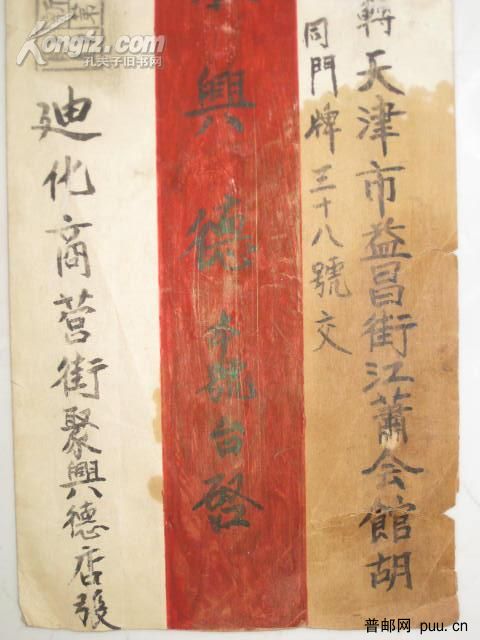 轉天津市益昌街江蕭会館胡
同門牌三十八號交
興德號台啓
廸化商营街聚興德店發
Kongfz.com
孔夫子旧书网
普邮网 puu.cn